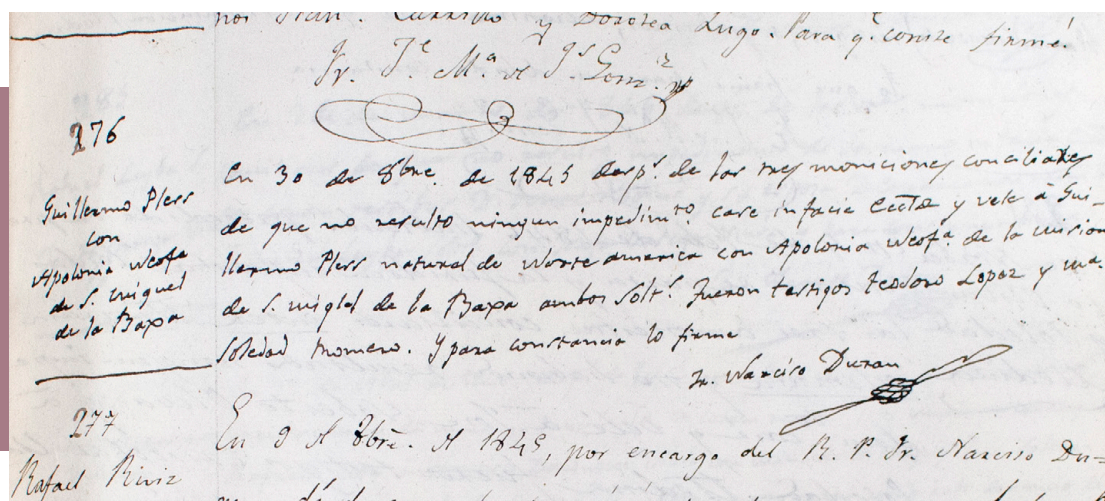 nos Fran. Carrillo y Dorotea Lugo. Para q. conste firmé.
Fr. Je. Ma. de Js. Gonz.z
276
Guillermo Pless
con
Apolonia Neofa
de S. Miguel
de la Baxa
En 30 de 8bre. de 1845 desp.s de las tres moniciones conciliares
de que no resulto ningun impedimto, case in facie Eccta y vele à Gui-
llermo Pless natural de Norte america con Apolonia Neofa. de la mision
de S. Miglel de la Baxa ambos Solt.s Fueron testigos Teodoro Lopez y Ma.
Soledad Romero. Y para constancia lo firme
Fr. Narciso Duran
277
Rafael Ruiz
En 9 d 8bre. d 1845, por encargo del R. P. Fr. Narciso Du=